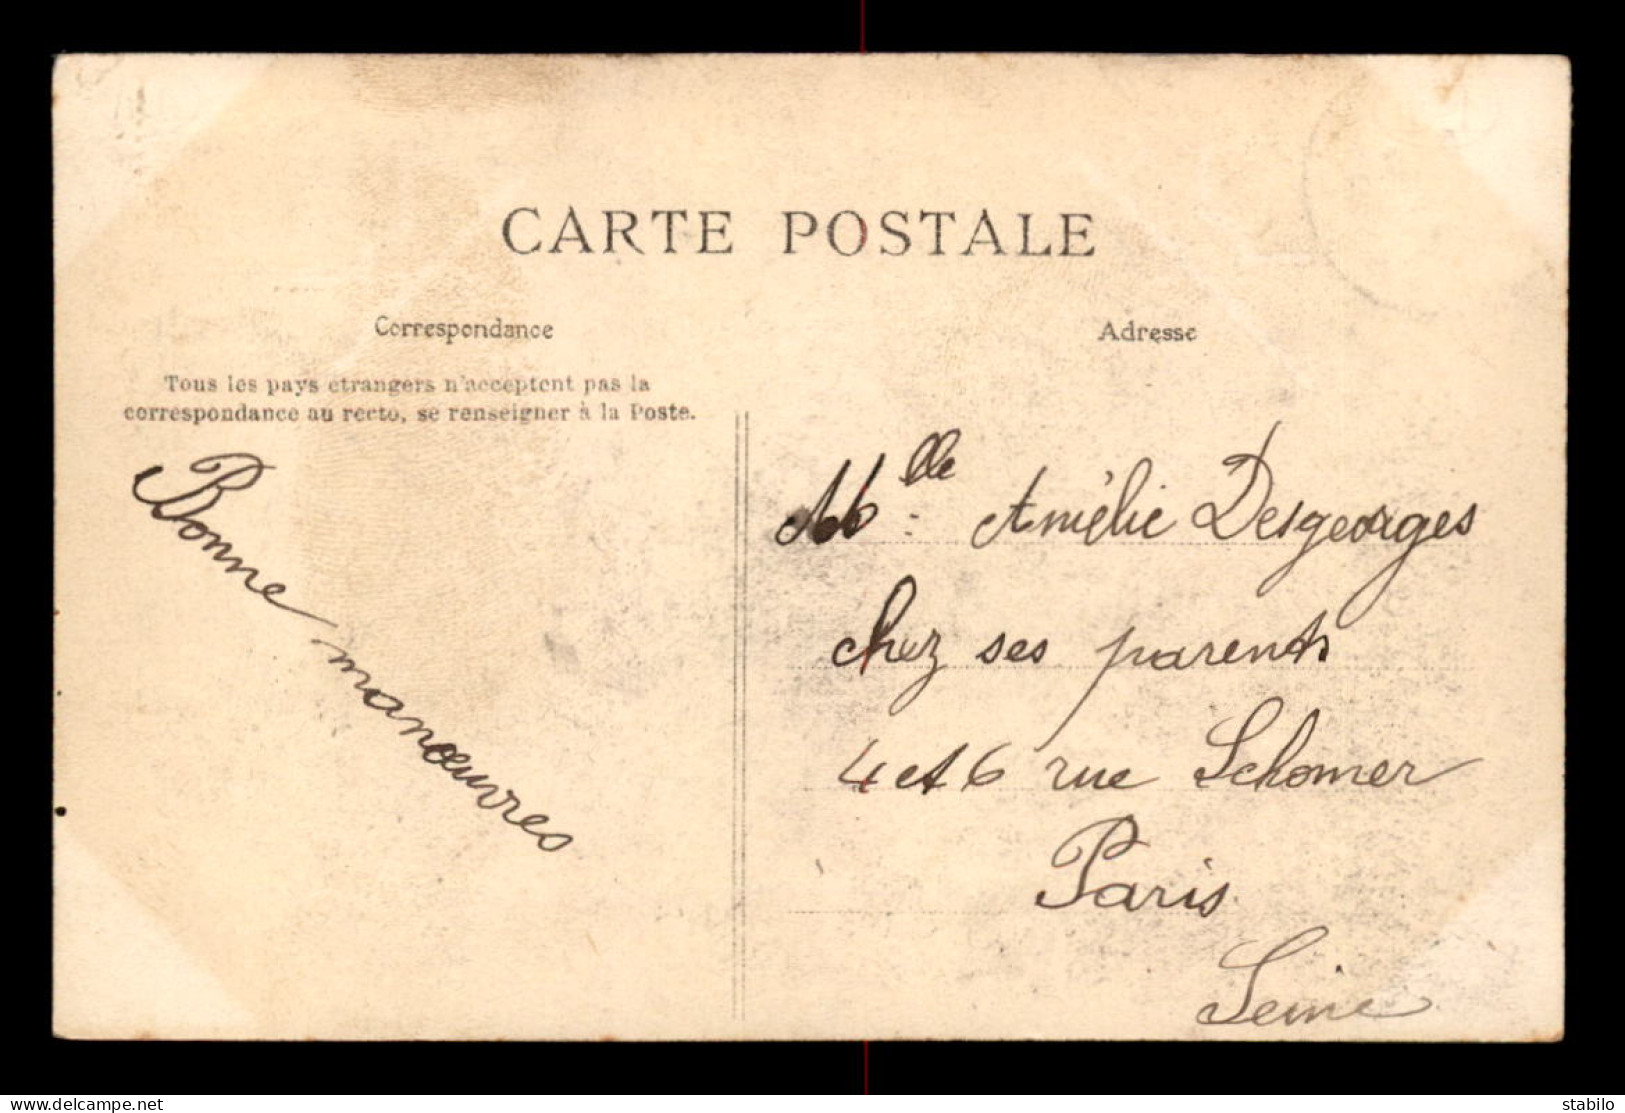 CARTE POSTALE
Correspondance
Adresse
Tous les pays étrangers n'acceptent pas la
correspondance au recto, se renseigner à la Poste.
Bonne manœuvres
Mlle Amélie Desgeorges
chez ses parents
4 et 6 rue Schomer
Paris
Seine
www.delcampe.net
stabilo